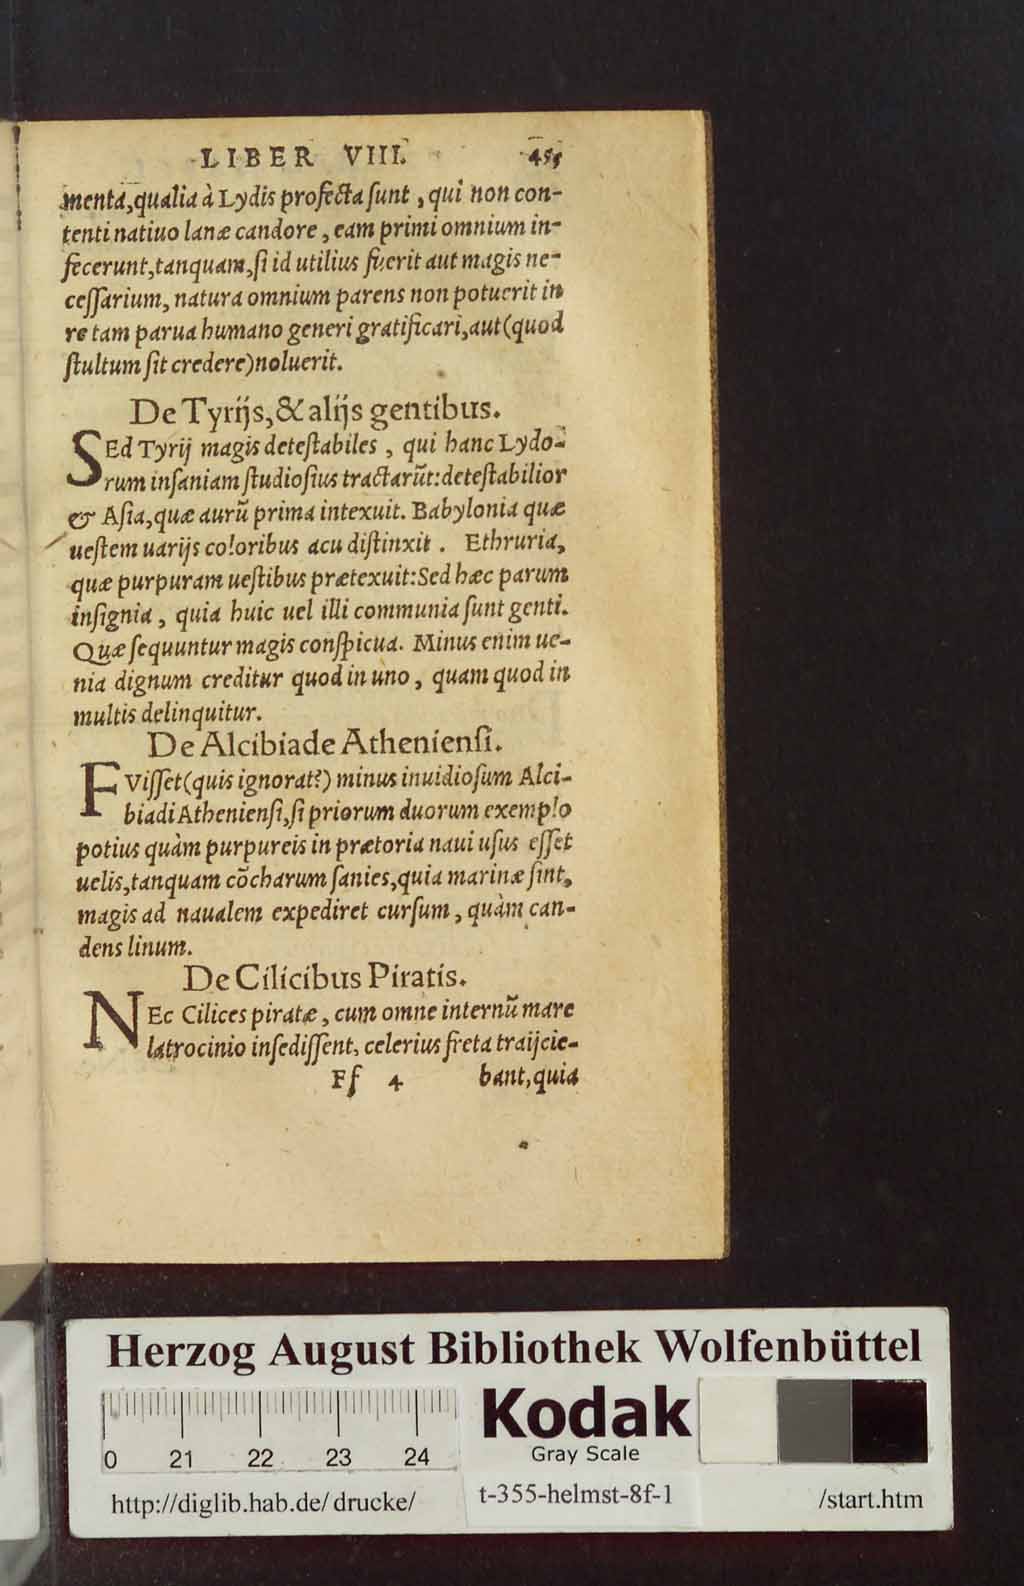 LIBER VIII. 455
menta, qualia à Lydis profecta ſunt, qui non con-
tenti natiuo lanæ candore, eam primi omnium in-
fecerunt, tanquam, ſi id utilius fuerit aut magis ne-
ceſſarium, natura omnium parens non potuerit in
re tam parua humano generi gratificari, aut (quod
ſtultum ſit credere) noluerit.
De Tyrijs, & alijs gentibus.
SEd Tyrij magis deteſtabiles, qui hanc Lydo-
rum inſaniam ſtudioſius tractarūt: deteſtabilior
& Aſia, quæ aurū prima intexuit. Babylonia quæ
ueſtem uarijs coloribus acu diſtinxit. Ethruria,
quæ purpuram ueſtibus prætexuit: Sed hæc parum
inſignia, quia huic uel illi communia ſunt genti.
Quæ ſequuntur magis conſpicua. Minus enim ue-
nia dignum creditur quod in uno, quam quod in
multis delinquitur.
De Alcibiade Athenienſi.
FViſſet (quis ignorat?) minus inuidioſum Alci-
biadi Athenienſi, ſi priorum duorum exemplo
potius quàm purpureis in prætoria naui uſus eſſet
uelis, tanquam cōcharum ſanies, quia marinæ ſint,
magis ad naualem expediret curſum, quàm can-
dens linum.
De Cilicibus Piratis.
NEc Cilices piratæ, cum omne internū mare
latrocinio inſediſſent, celerius freta traijcie-
Ff 4 bant, quia
Herzog August Bibliothek Wolfenbüttel
Kodak
Gray Scale
0 21 22 23 24
http://diglib.hab.de/drucke/ t-355-helmst-8f-1 /start.htm